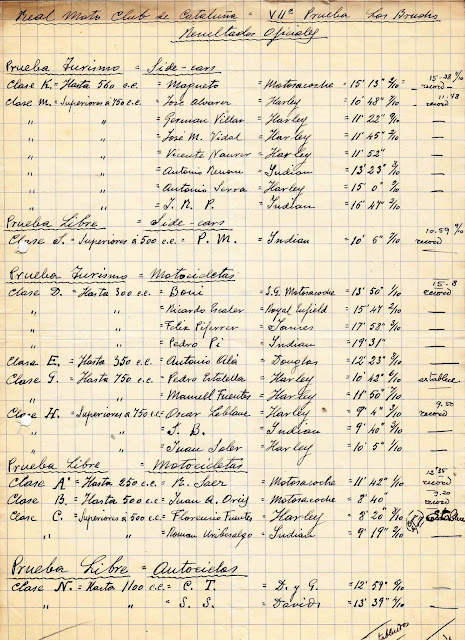 Real Moto Club de Cataluña = VIIª Prueba Los Bruchs
Resultados Oficiales
Prueba Turismo = Side-cars
Clase K. = Hasta 560 c.c. = Maqueto = Motosacoche = 15' 13" 2/10 = record
Clase M. = Superiores a 750 c.c. = José Alvarez = Harley = 10' 48" 7/10 = record
" " = German Villar = Harley = 11' 22" —
" " = José M. Vidal = Harley = 11' 45" —
" " = Vicente = Harley = 11' 52" —
" " = Antonio = Indian = 13' 23" —
" " = Antonio Serra = Harley = 15' 0" —
" " = J. R. P. = Indian = 16' 47" —
Prueba Libre = Side-cars
Clase = Superiores á 500 c.c. = P. M. = Indian = 10' 6" record
Prueba Turismo = Motocicletas
Clase D. = Hasta 300 c.c. = Boni = S.G. Motosacoche = 13' 50" record
" " = Ricardo = Royal Enfield = 15' 47" —
" " = Felix = James = 17' 52" —
" " = Pedro Pi = Indian = 19' 31" —
Clase E. = Hasta 350 c.c. = Antonio Vilá = Douglas = 12' 23" —
Clase G. = Hasta 750 c.c. = Pedro Estatella = Harley = 10' 42" establece
" " = Manuel Fuentes = Harley = 11' 50" —
Clase H. = Superiores a 750 c.c. = Oscar Leblanc = Harley = 9' 4" record
" " = S. B. = Indian = 9' 40" —
" " = Juan Soler = Harley = 10' 5" —
Prueba Libre Motocicletas
Clase A' = Hasta 250 c.c. = = Motosacoche = 11' 42" record
Clase B. = Hasta 500 c.c. = Juan = Motosacoche = 8' 40" record
Clase C. = Superiores á 500 c.c. = Florencio Fuentes = Harley = 8' 20"
" " = = Indian = 9' 19" —
Prueba Libre = Autociclos
Clase N. = Hasta 1100 c.c. = C. T. = D. y G. = 12' 59" —
" " = S. S. = David = 13' 39" —